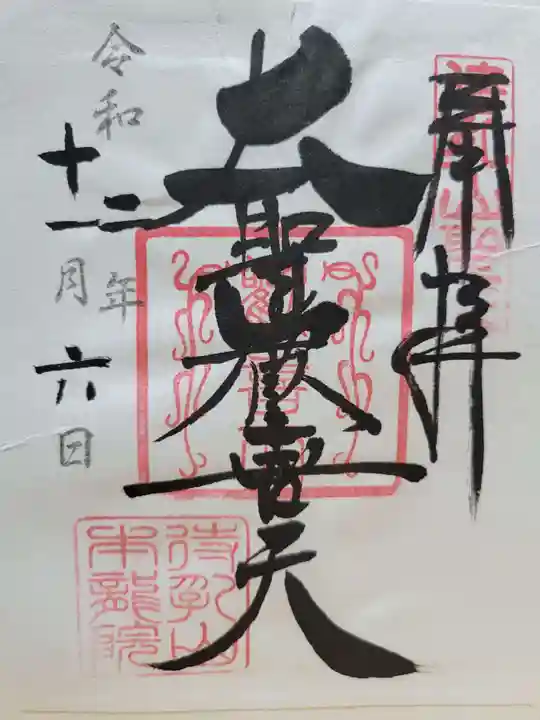 奉拝
大聖歡喜天
令和二年
十一月六日
待乳山
本龍院